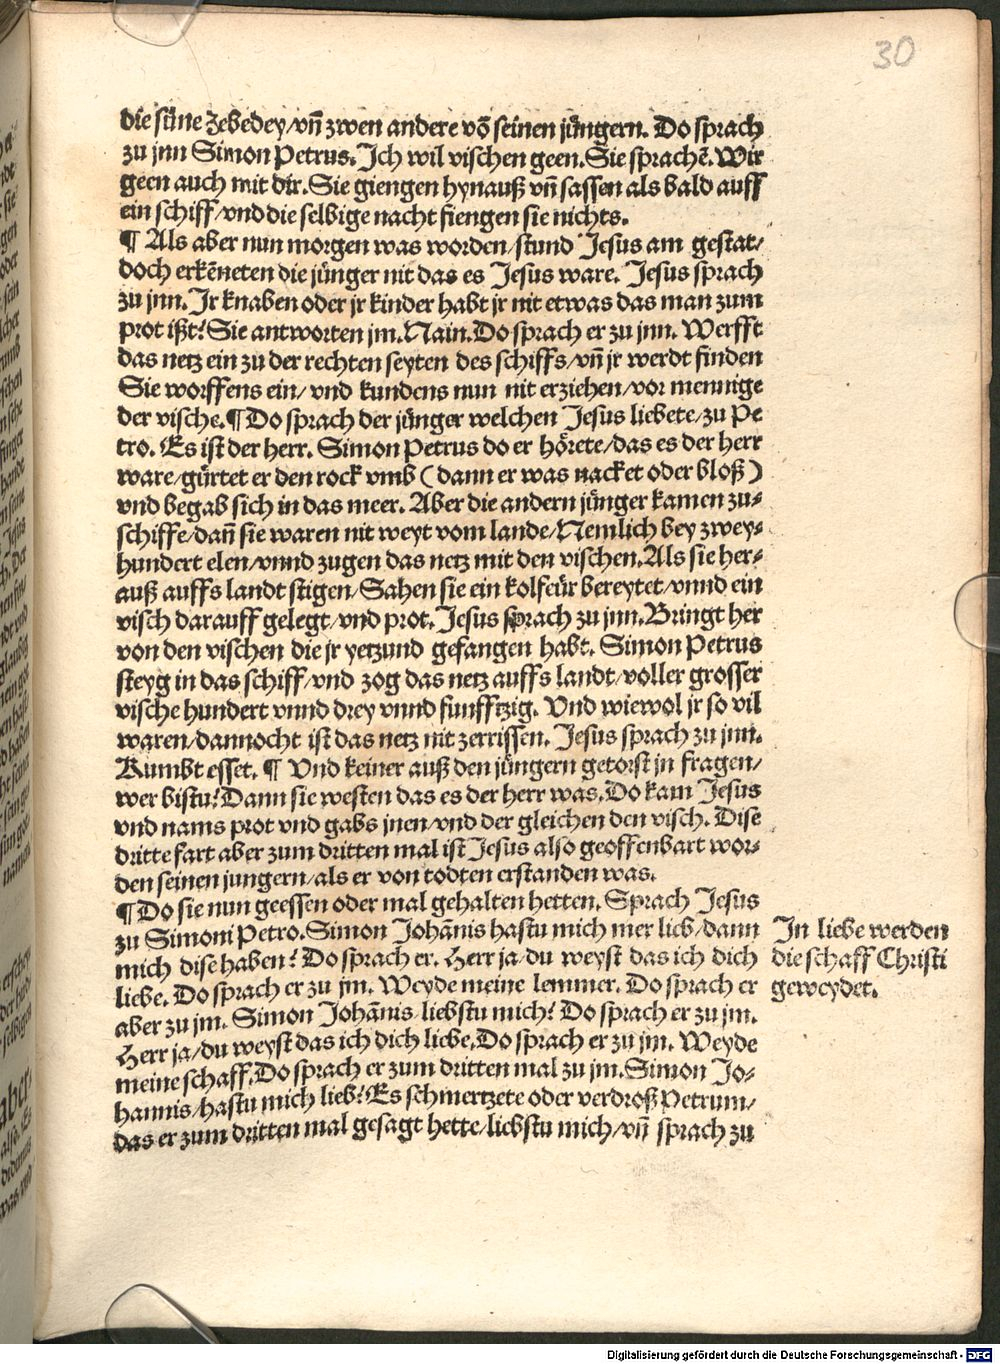 30
die süne Zebedey/vñ zwen andere võ seinen jüngern. Do sprach
zu jnn Simon Petrus. Ich wil vischen geen. Sie sprachẽ. Wir
geen auch mit dir. Sie giengen hynauß vñ sassen als bald auff
ein schiff/vnd die selbige nacht fiengen sie nichts.
¶ Als aber nun morgen was worden/stund Jesus am gestat/
doch erkẽneten die jünger nit das es Jesus ware. Jesus sprach
zu jnn. Ir knaben oder jr kinder habt jr nit etwas das man zum
prot ißt? Sie antworten jm. Nain. Do sprach er zu jnn. Werfft
das netz ein zu der rechten seyten des schiffs/vñ jr werdt finden
Sie worffens ein/vnd kundens nun nit erziehen/vor mennige
der vische. ¶ Do sprach der jünger welchen Jesus liebete/zu Pe
tro. Es ist der herr. Simon Petrus do er hörete/das es der herr
ware/gürtet er den rock vmb (dann er was nacket oder bloß)
vnd begab sich in das meer. Aber die andern jünger kamen zu-
schiffe/dañ sie waren nit weyt vom lande/Nemlich bey zwey-
hundert elen/vnnd zugen das netz mit den vischen. Als sie her-
auß auffs landt stigen/Sahen sie ein kolfeür bereytet/vnnd ein
visch darauff gelegt/vnd prot. Jesus sprach zu jnn. Bringt her
von den vischen die jr yetzund gefangen habt. Simon Petrus
steyg in das schiff/vnd zog das netz auffs landt/voller grosser
vische hundert vnnd drey vnnd funfftzig. Vnd wiewol jr so vil
waren/dannocht ist das netz nit zerrissen. Jesus sprach zu jnn.
Kumbt esset. ¶ Vnd keiner auß den jüngern getorst jn fragen/
wer bistu? Dann sie westen das es der herr was. Do kam Jesus
vnd nams prot vnd gabs jnen/vnd der gleichen den visch. Dise
dritte fart aber zum dritten mal ist Jesus also geoffenbart wor-
den seinen jungern/als er von todten erstanden was.
¶ Do sie nun geessen oder mal gehalten hetten. Sprach Jesus
zu Simoni Petro. Simon Johãnis hastu mich mer lieb/dann
mich dise haben? Do sprach er. Herr ja/du weyst das ich dich
liebe. Do sprach er zu jm. Weyde meine lemmer. Do sprach er
aber zu jm. Simon Johãnis liebstu mich? Do sprach er zu jm.
Herr ja/du weyst das ich dich liebe. Do sprach er zu jm. Weyde
meine schaff. Do sprach er zum dritten mal zu jm. Simon Jo-
hannis/hastu mich lieb? Es schmertzete oder verdroß Petrum/
das er zum dritten mal gesagt hette/liebstu mich/vñ sprach zu
In liebe werden
die schaff Christi
geweydet.
Digitalisierung gefördert durch die Deutsche Forschungsgemeinschaft - DFG